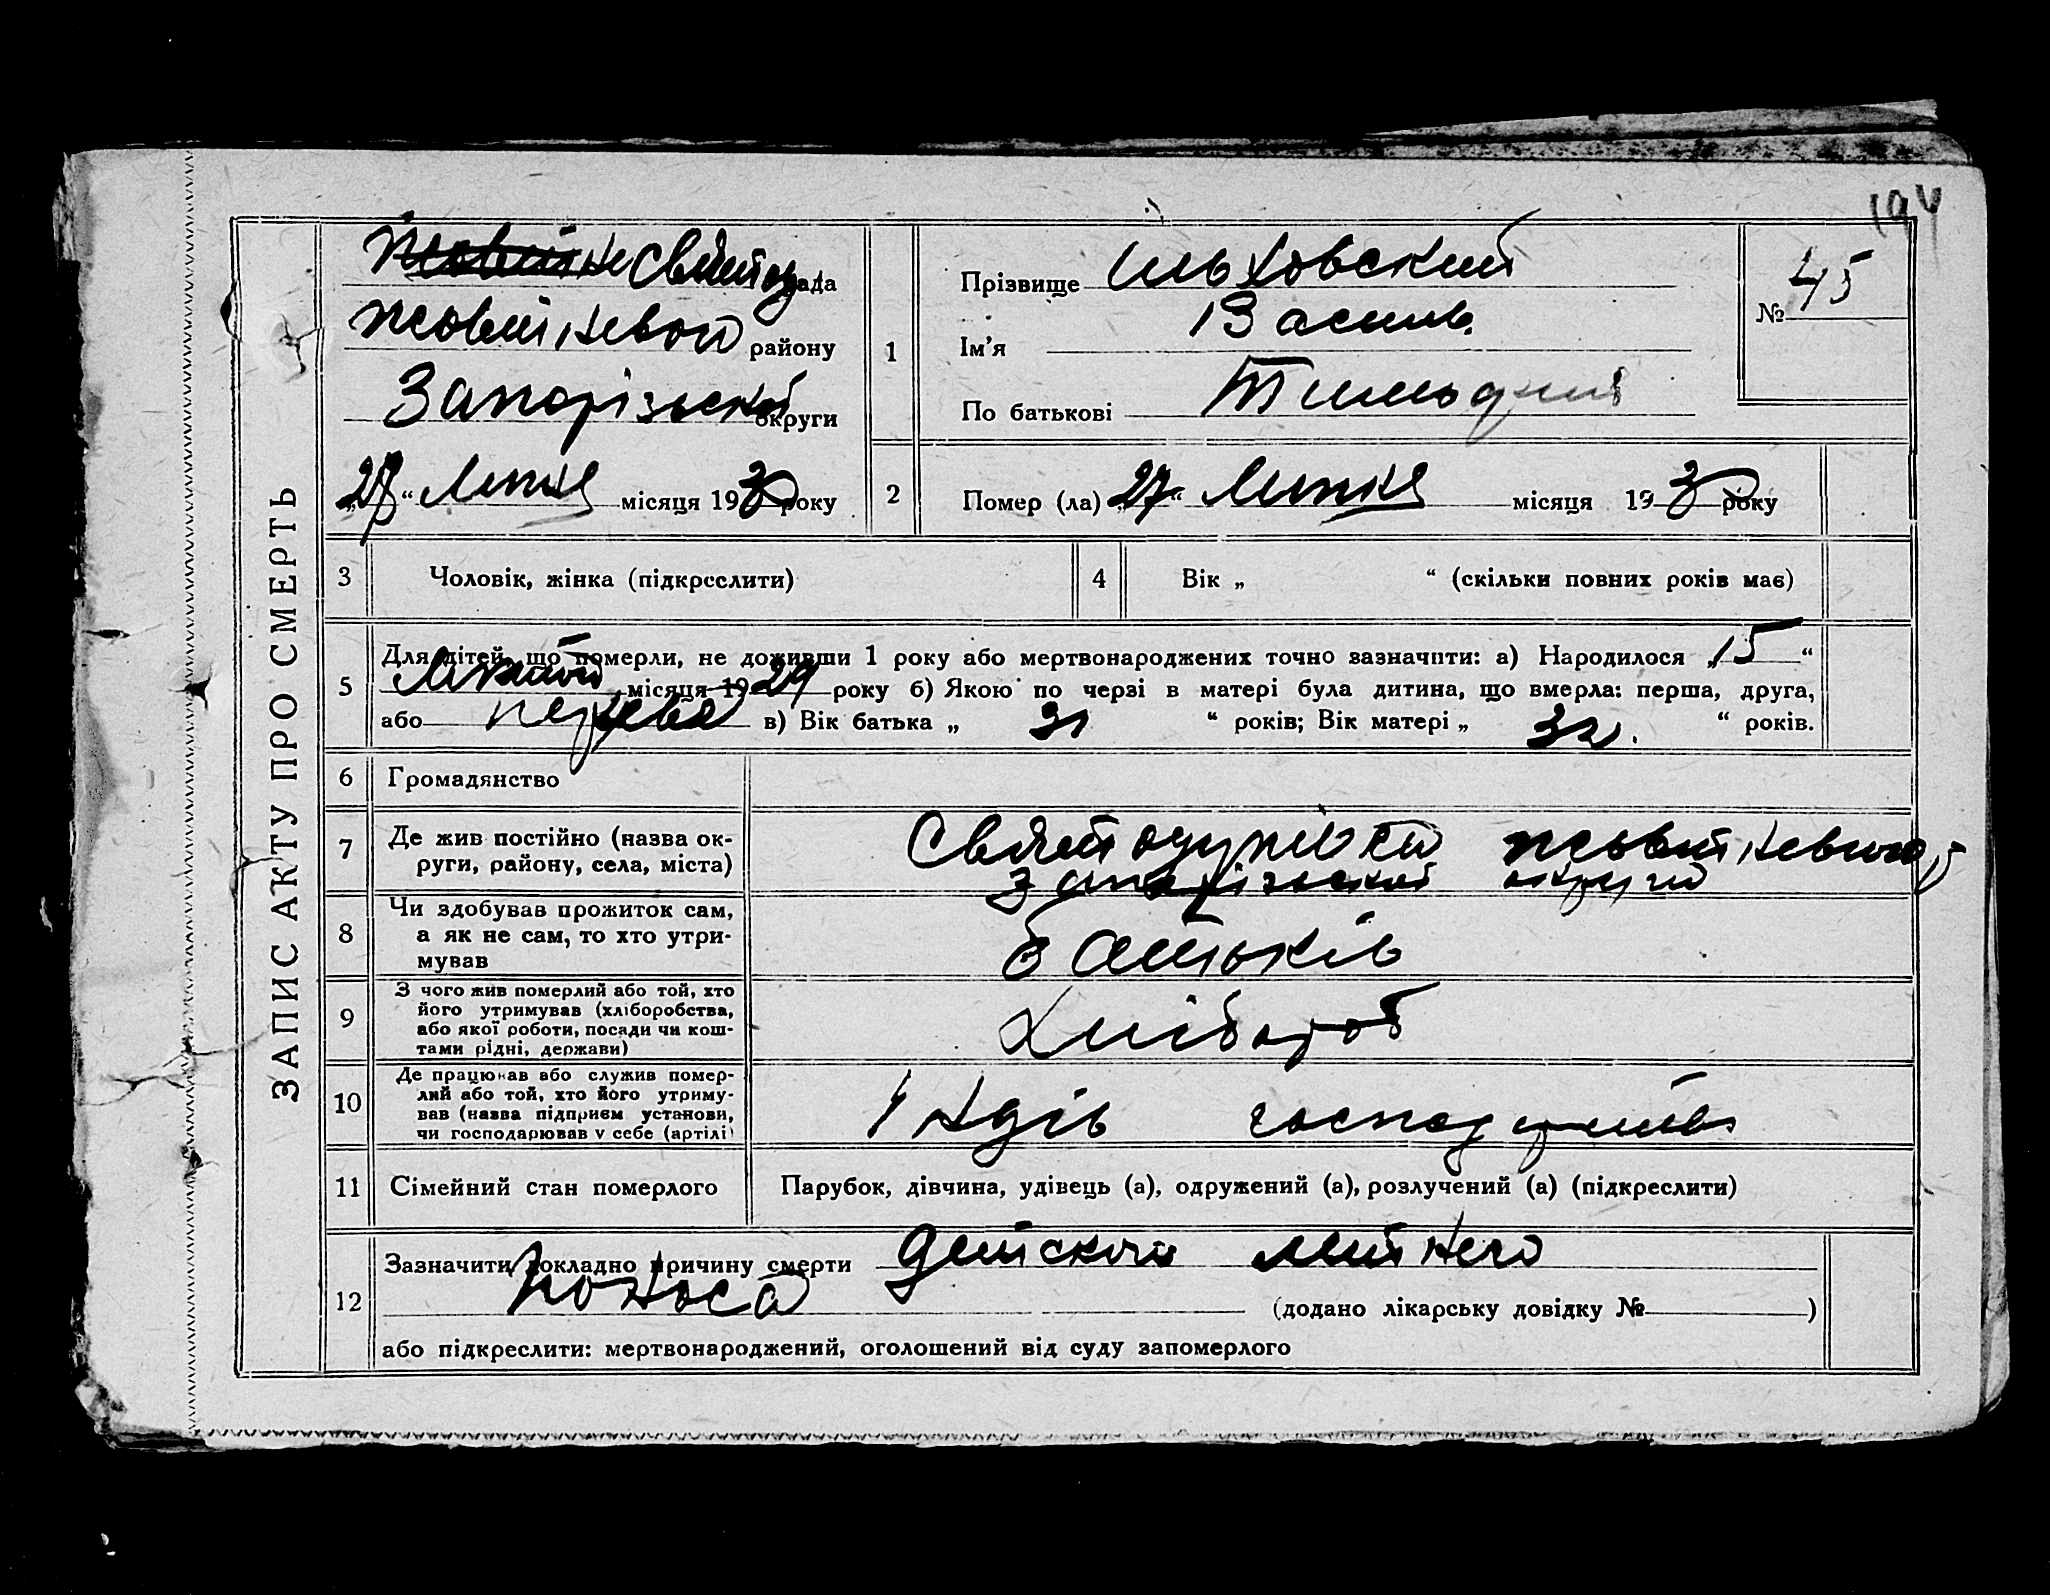 194
ЗАПИС АКТУ ПРО СМЕРТЬ
рада
Жовтневой району
Запорізької округи
„28“ Липня місяця 1930 року
1
Прізвище Ильховский
Ім’я Василь
По батькові
№ 45
2
Помер (ла) „27“ Липня місяця 1930 року
3 Чоловік, жінка (підкреслити)
4 Вік „ “ (скільки повних років має)
5
Для дітей, що померли, не доживши 1 року або мертвонароджених точно зазначити: а) Народилося „15“
місяця 1929 року б) Якою по черзі в матері була дитина, що вмерла: перша, друга,
або в) Вік батька „ 31 “ років; Вік матері „ 32. “ років.
6 Громадянство
7 Де жив постійно (назва ок-
руги, району, села, міста)
Запорізької округи
8 Чи здобував прожиток сам,
а як не сам, то хто утри-
мував
батьків
9 З чого жив померлий або той, хто
його утримував (хліборобства,
або якої роботи, посади чи кош-
тами рідні, держави)
Хлібороб
10 Де працював або служив помер-
лий або той, хто його утриму-
вав (назва підприєм установи,
чи господарював у себе (артілі)
11 Сімейний стан померлого
Парубок, дівчина, удівець (а), одружений (а), розлучений (а) (підкреслити)
12
Зазначити докладно причину смерти
поноса (додано лікарську довідку № )
або підкреслити: мертвонароджений, оголошений від суду запомерлого